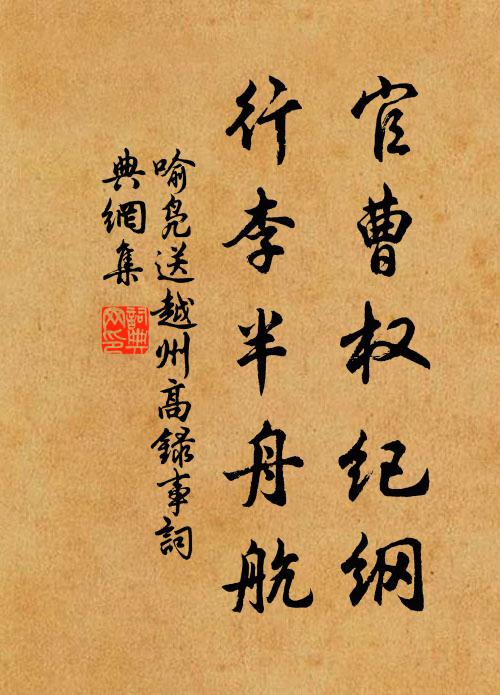 官曹权纪纲
行李半舟航
喻凫送越州高録事詞
典網集
詞典网印